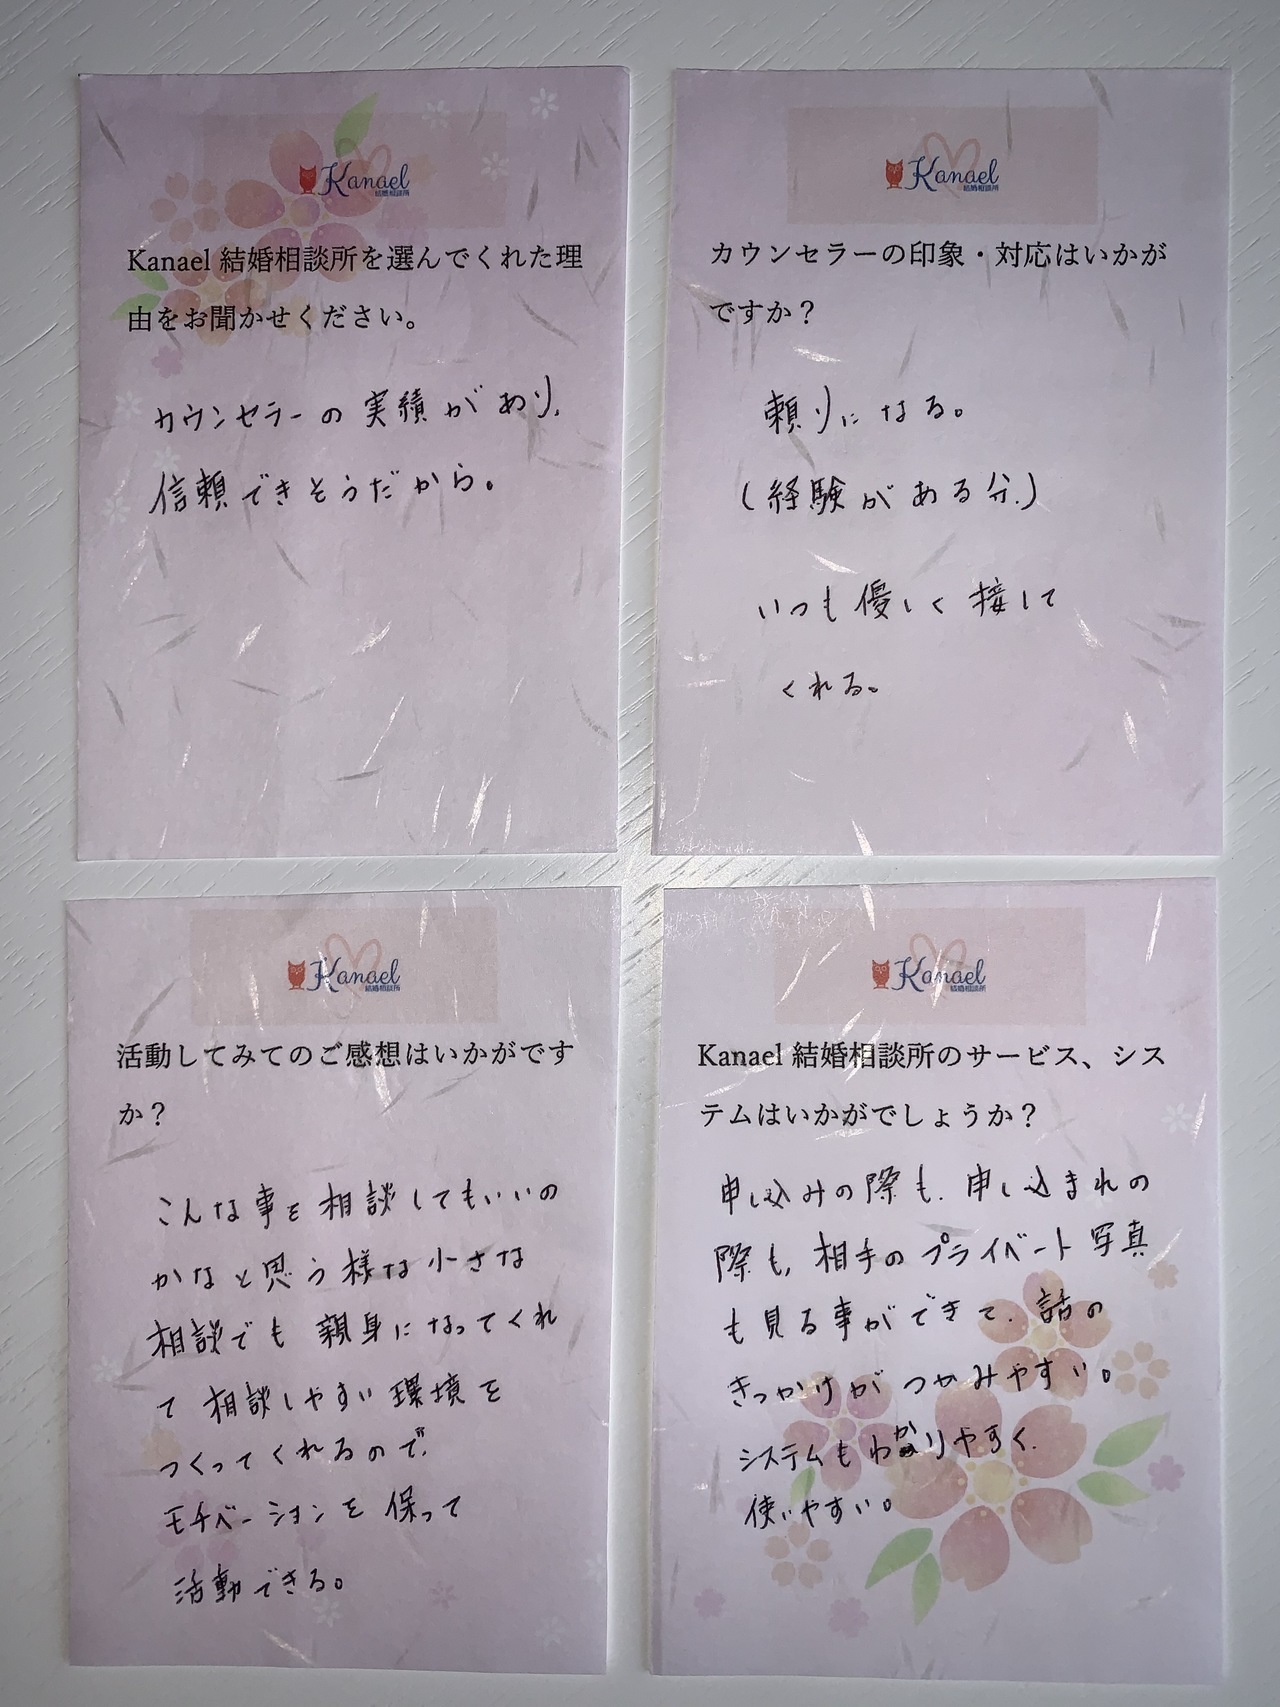 Kanael
結婚相談所
Kanael 結婚相談所を選んでくれた理
由をお聞かせください。
カウンセラーの実績があり、
信頼できそうだから。
Kanael
結婚相談所
カウンセラーの印象・対応はいかが
ですか？
頼りになる。
(経験がある分、)
いつも優しく接して
くれる。
Kanael
結婚相談所
活動してみてのご感想はいかがです
か？
こんな事を相談してもいいの
かなと思う様な小さな
相談でも親身になってくれ
て相談しやすい環境を
つくってくれるので、
モチベーションを保って
活動できる。
Kanael
結婚相談所
Kanael 結婚相談所のサービス、シス
テムはいかがでしょうか？
申し込みの際も、申し込まれの
際も、相手のプライベート写真
も見る事ができて、話の
きっかけがつかみやすい。
システムもわかりやすく、
使いやすい。